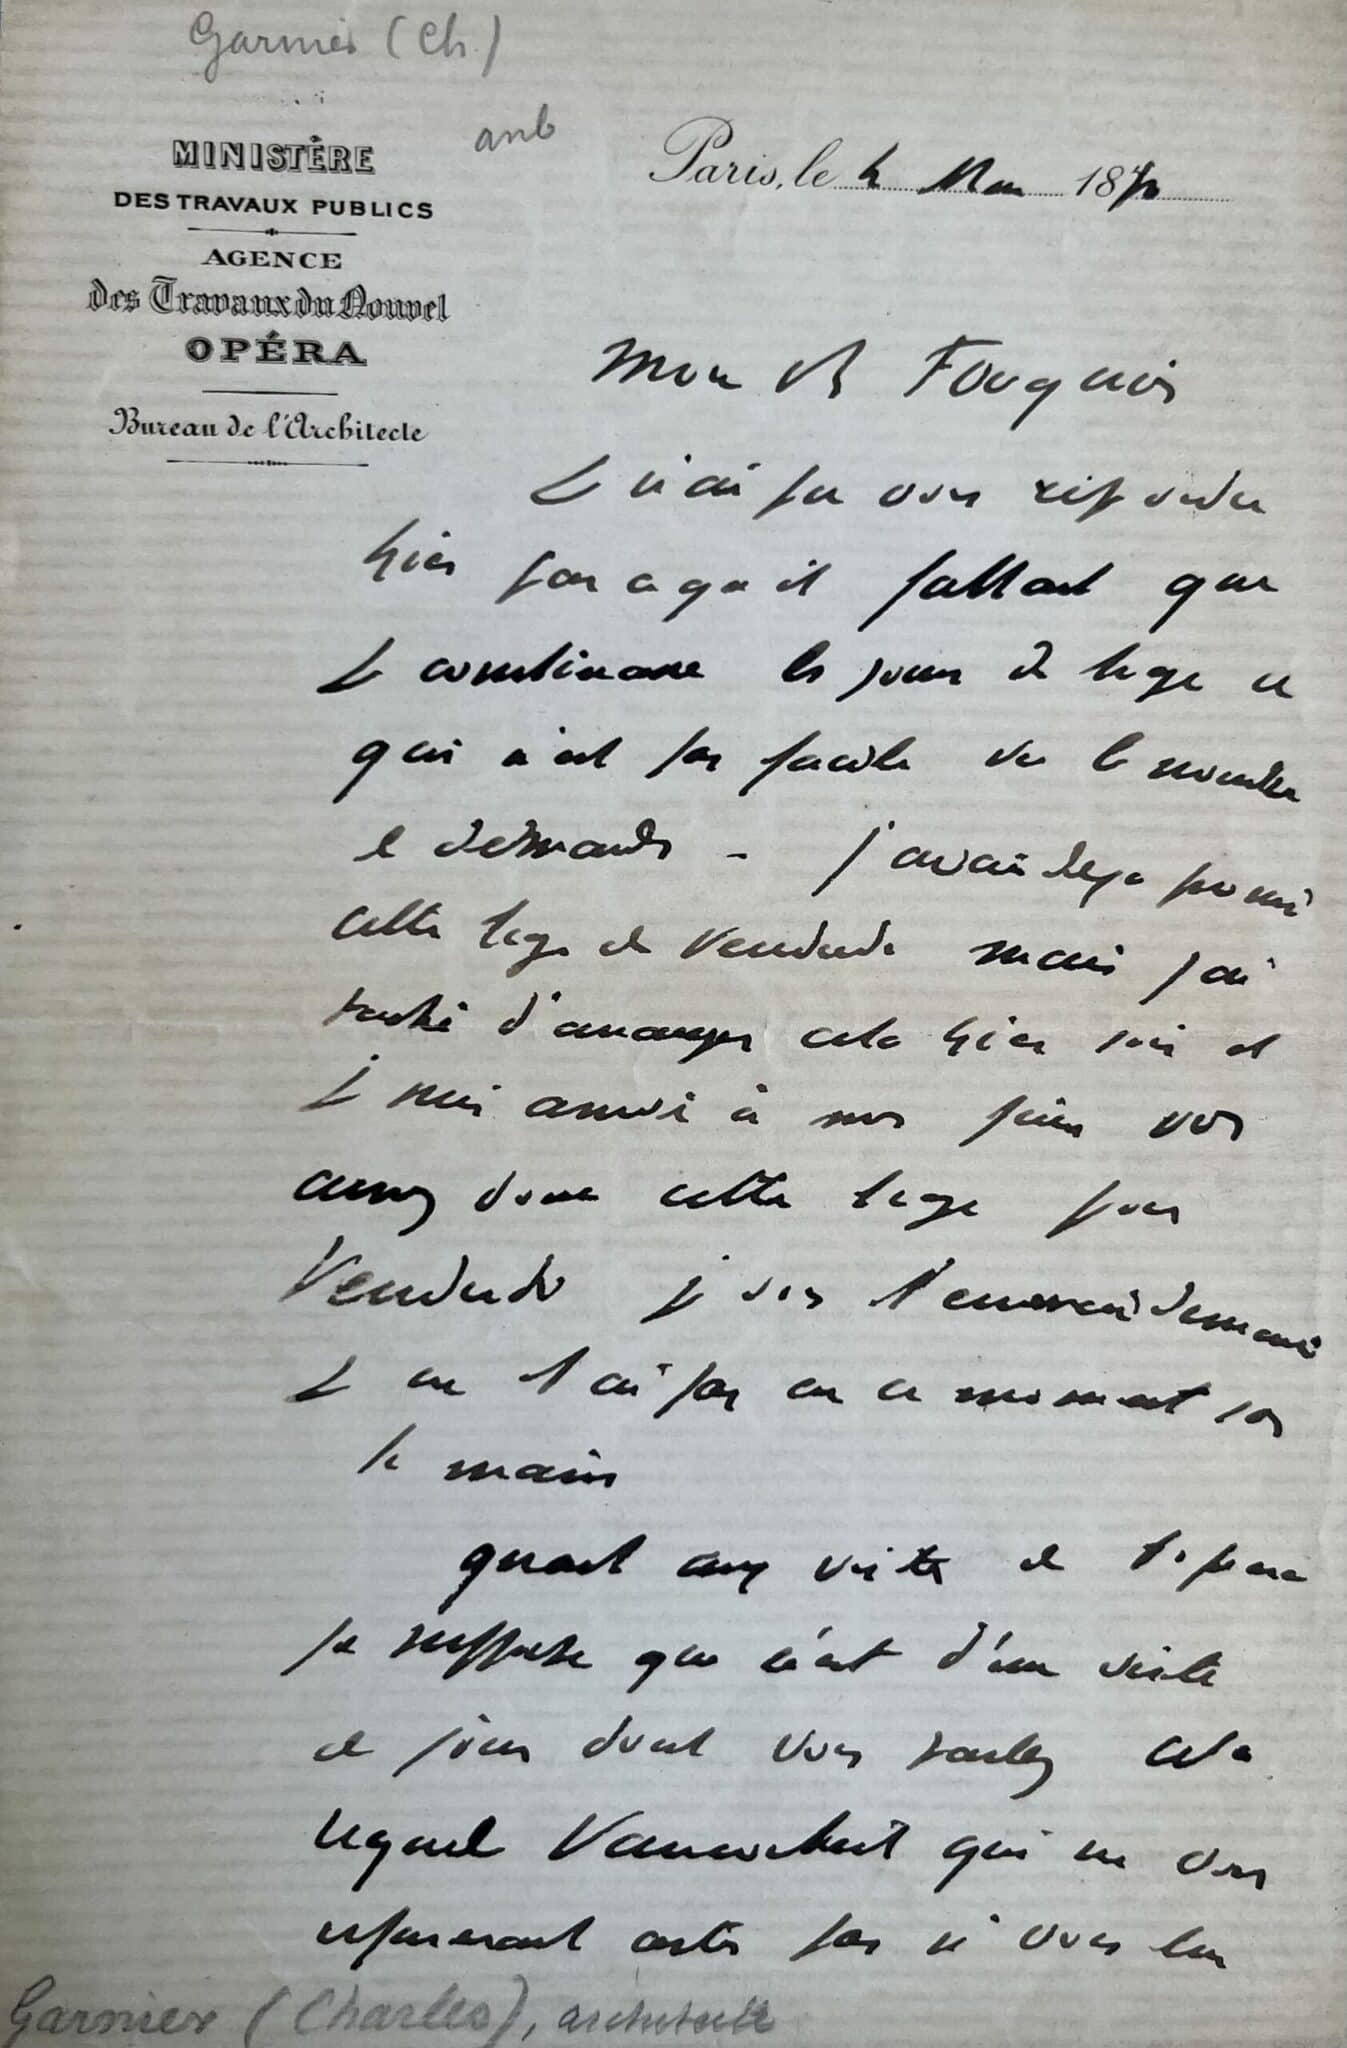 Garnier (Ch.)
MINISTÈRE
DES TRAVAUX PUBLICS
AGENCE
des Travaux du Nouvel
OPÉRA
Bureau de l'Architecte
Paris, le 4 Mai 187
Mon ch Fouquier
Je n'ai pu vous répondre
hier parce qu'il fallait que
je combinasse les jours de loge ce
qui n'est pas facile vu le nombre
de demandes - j'avais déjà promis
cette loge de vendredi mais j'ai
taché d'arranger cela hier soir et
je suis arrivé à mes fins vous
aurez donc cette loge pour
Vendredi je vous l'enverrai demain
je ne l'ai pas en ce moment sous
la main
quant aux visites de l'opera
je suppose que c'est d'une visite
de jour dont vous parlez cela
regarde Vaucorbeil qui ne vous
refuserait certes pas si vous lui
Garnier (Charles), architecte